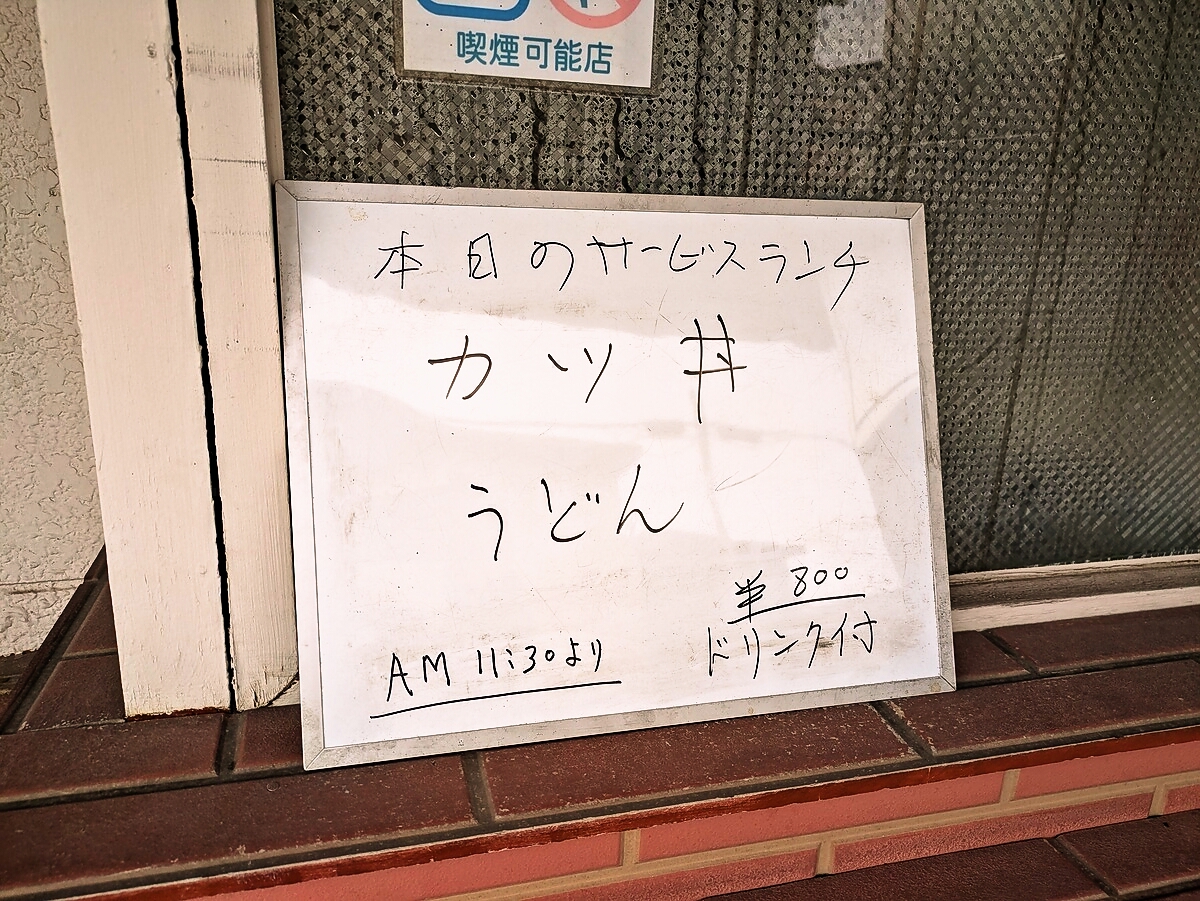 喫煙可能店
本日のサービスランチ
カツ丼
うどん
¥800
ドリンク付
AM 11:30より